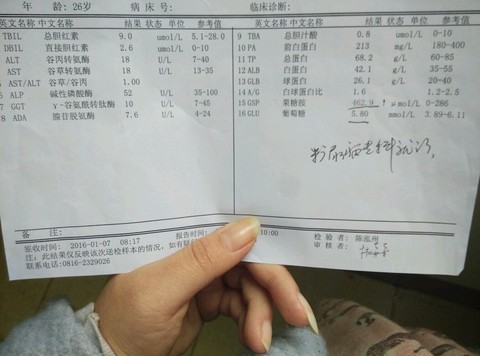 年 龄: 26岁 病 床 号: 临床诊断:
英文 中文名称 结果 状态 单位 参考值 英文名称 中文名称 结果 状态 单位 参考值
TBIL 总胆红素 9.0 umol/L 5.1-28.0 9 TBA 总胆汁酸 0.8 umol/L 0-10
DBIL 直接胆红素 2.6 umol/L 0-10 10 PA 前白蛋白 213 mg/L 180-400
ALT 谷丙转氨酶 18 U/L 7-40 11 TP 总蛋白 68.2 g/L 60-85
AST 谷草转氨酶 18 U/L 13-35 12 ALB 白蛋白 42.1 g/L 35-55
AST/ALT 谷草/谷丙 1.00 13 GLB 球蛋白 26.1 g/L 20-40
ALP 碱性磷酸酶 52 U/L 35-100 14 A/G 白球蛋白比 1.6 1.2-2.5
7 GGT γ-谷氨酰转肽酶 10 U/L 7-45 15 GSP 果糖胺 462.9 ↑ μmol/L 0-286
8 ADA 腺苷脱氨酶 7.6 U/L 4-24 16 GLU 葡萄糖 5.80 mmol/L 3.89-6.11
备 注:
签收时间: 2016-01-07 08:17 报告时间: 10:00 检 验 者: 陈泓州
注: 此结果仅反映该次送检样本的情况, 如有疑 审 核 者:
联系电话:0816-2329026